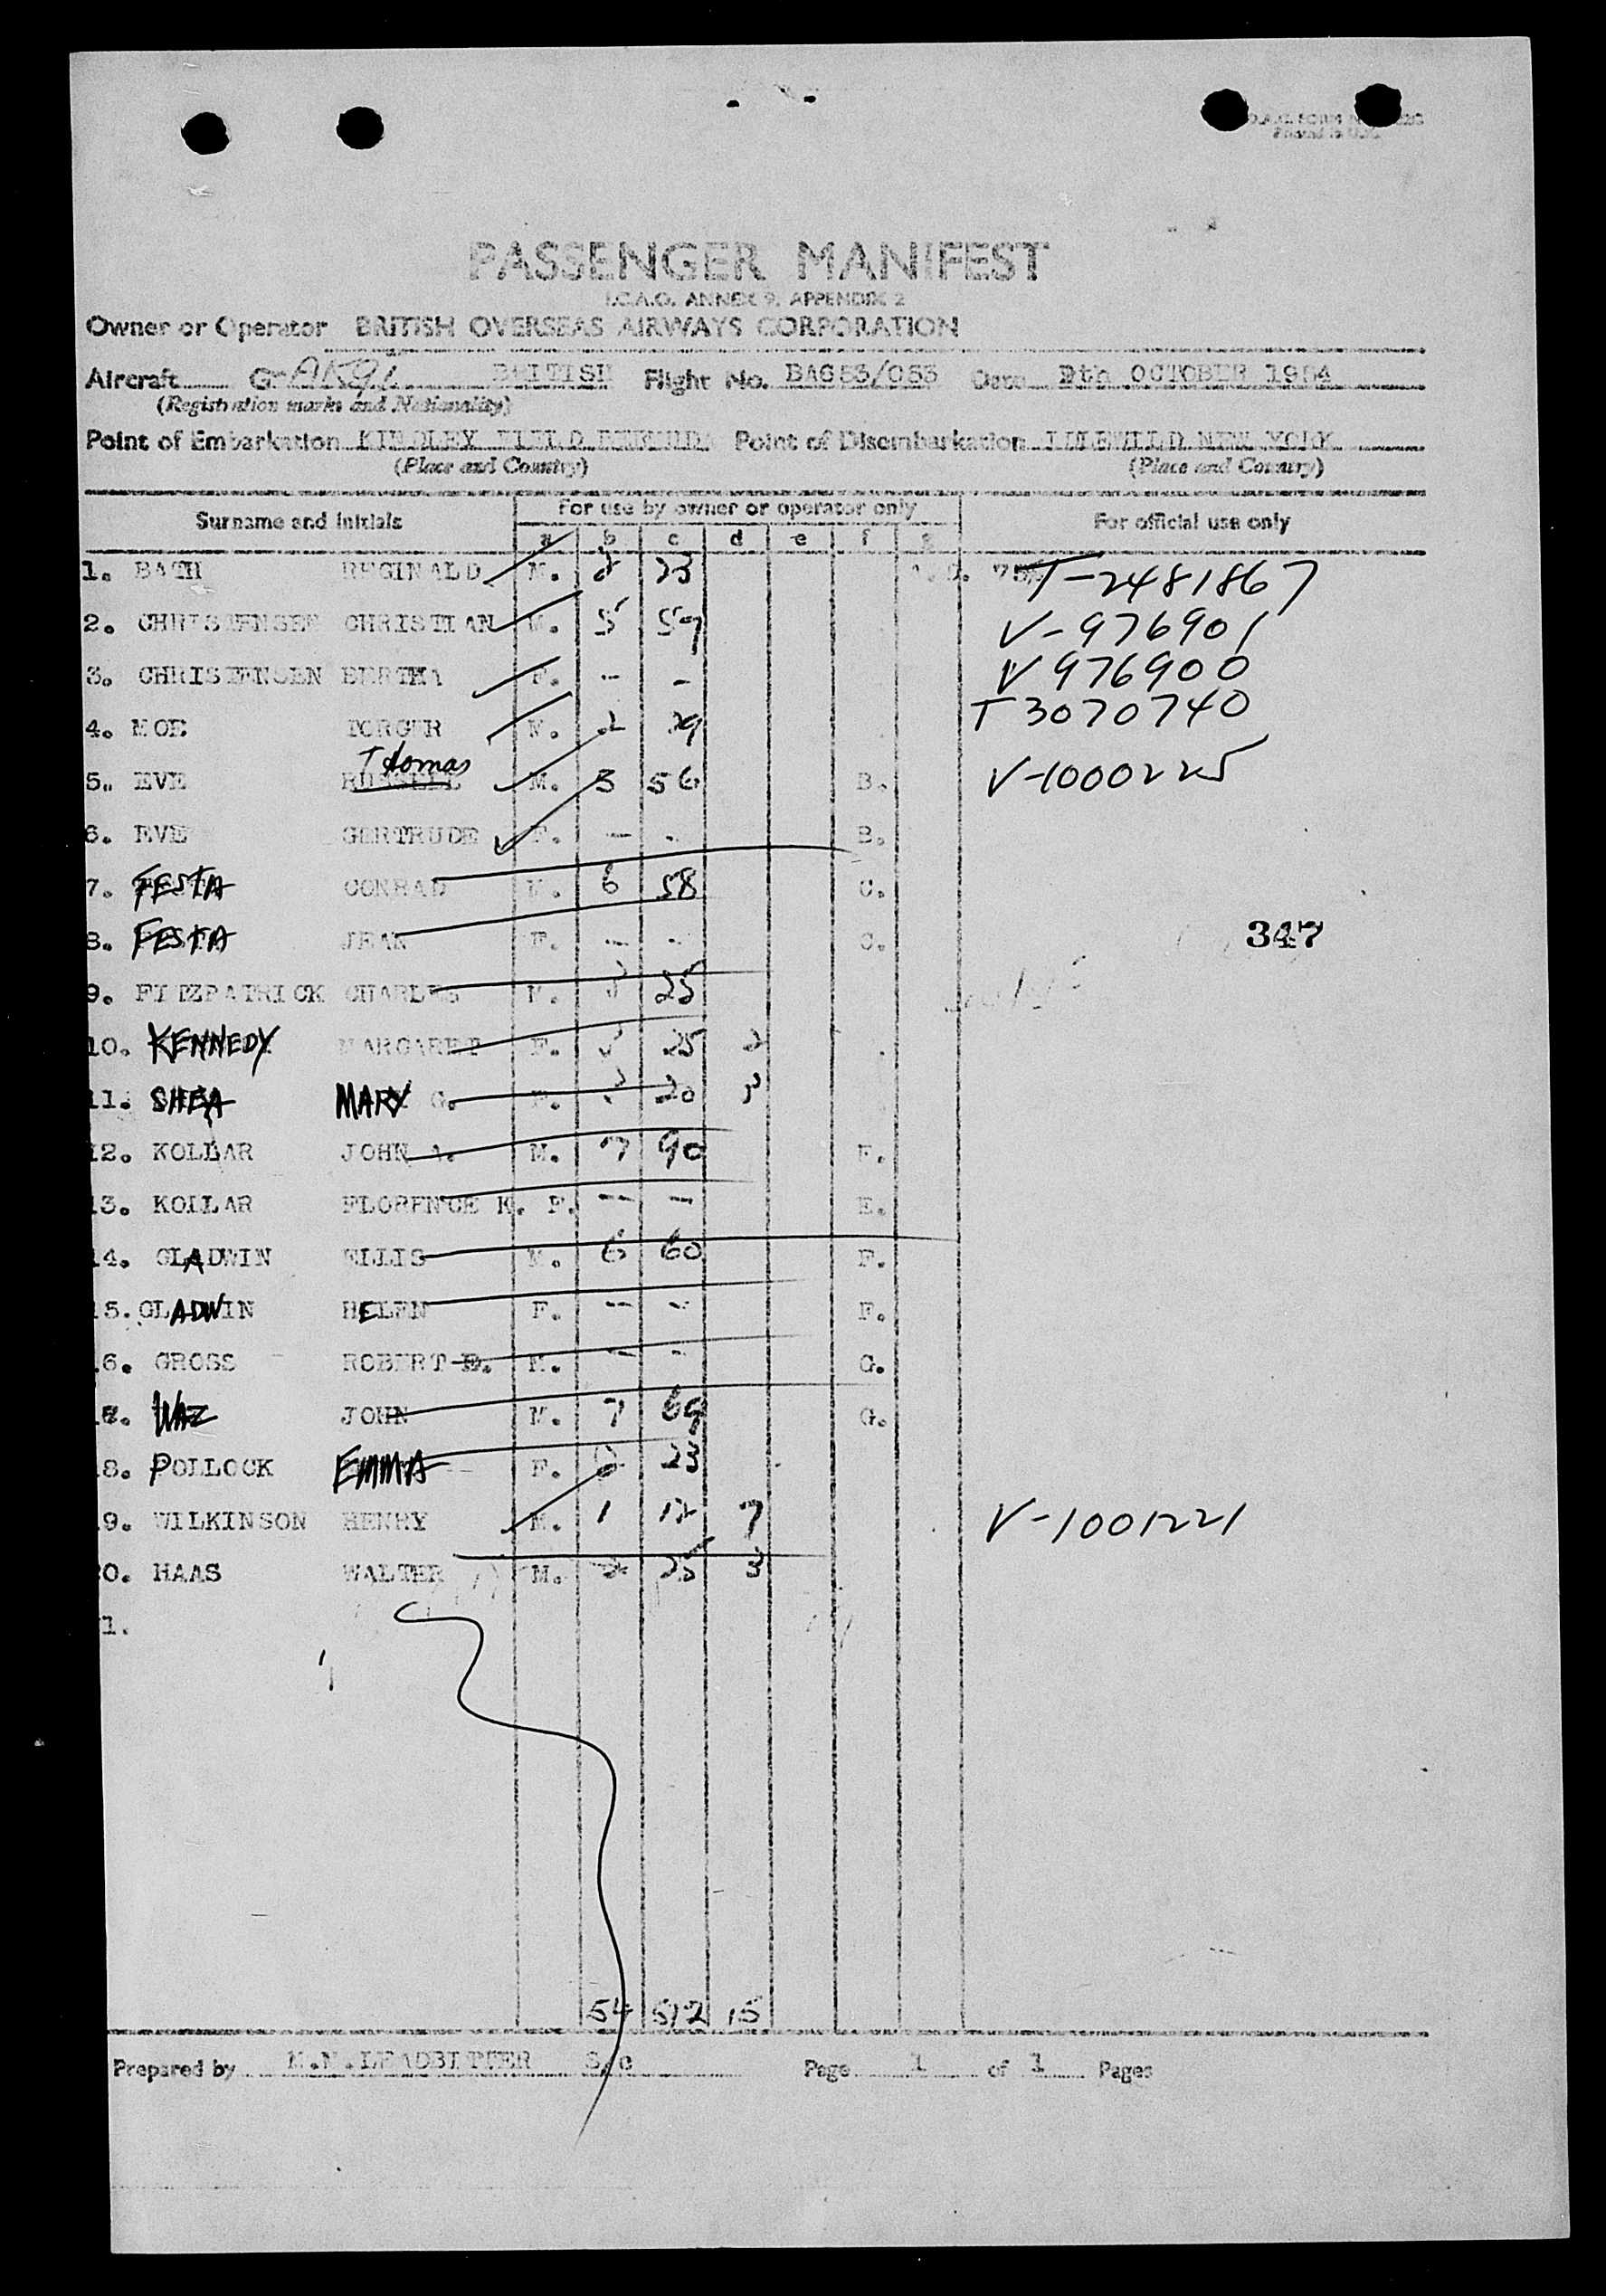 PASSENGER MANIFEST
I.C.A.O. ANNEX 9, APPENDIX 2
Owner or Operator BRITISH OVERSEAS AIRWAYS CORPORATION
Aircraft G- BRITISH Flight No. Date OCTOBER 1954
(Registration marks and Nationality)
Point of Embarkation KINDLEY FIELD BERMUDA Point of Disembarkation IDLEWILD NEW YORK
(Place and Country) (Place and Country)
Surname and initials For use by owner or operator only For official use only
a b c d e f g
1. BATH REGINALD M. 2 23 T-2481867
2. CHRISTENSEN CHRISTIAN M. 5 59 V-976901
3. CHRISTENSEN BERTHA F. - - V 976900
4. MOE TORGER M. 2 29 T 3070740
Thomas
5. EVE RUSSELL M. 3 56 B. V-1000225
6. EVE GERTRUDE F. - - B.
7. FESTA CONRAD M. 6 58 C.
8. FESTA JEAN F. - - C. 347
9. FITZPATRICK CHARLES M. 25
10. KENNEDY MARGARET F. 25 2
11. SHEA MARY G. F. 20 3
12. KOLLAR JOHN A. M. 7 90 E.
13. KOLLAR FLORENCE K. F. - - E.
14. GLADWIN ELLIS M. 6 60 F.
15. GLADWIN HELEN F. - - F.
16. GROSS ROBERT D. M. - - G.
17. WAZ JOHN M. 7 69 G.
18. POLLOCK EMMA F. 2 23
19. WILKINSON HENRY M. 1 12 7 V-1001221
20. HAAS WALTER M. 2 25 3
21.
54 572 15
Prepared by M.N.LEADBITTER S/c Page 1 of 1 Pages